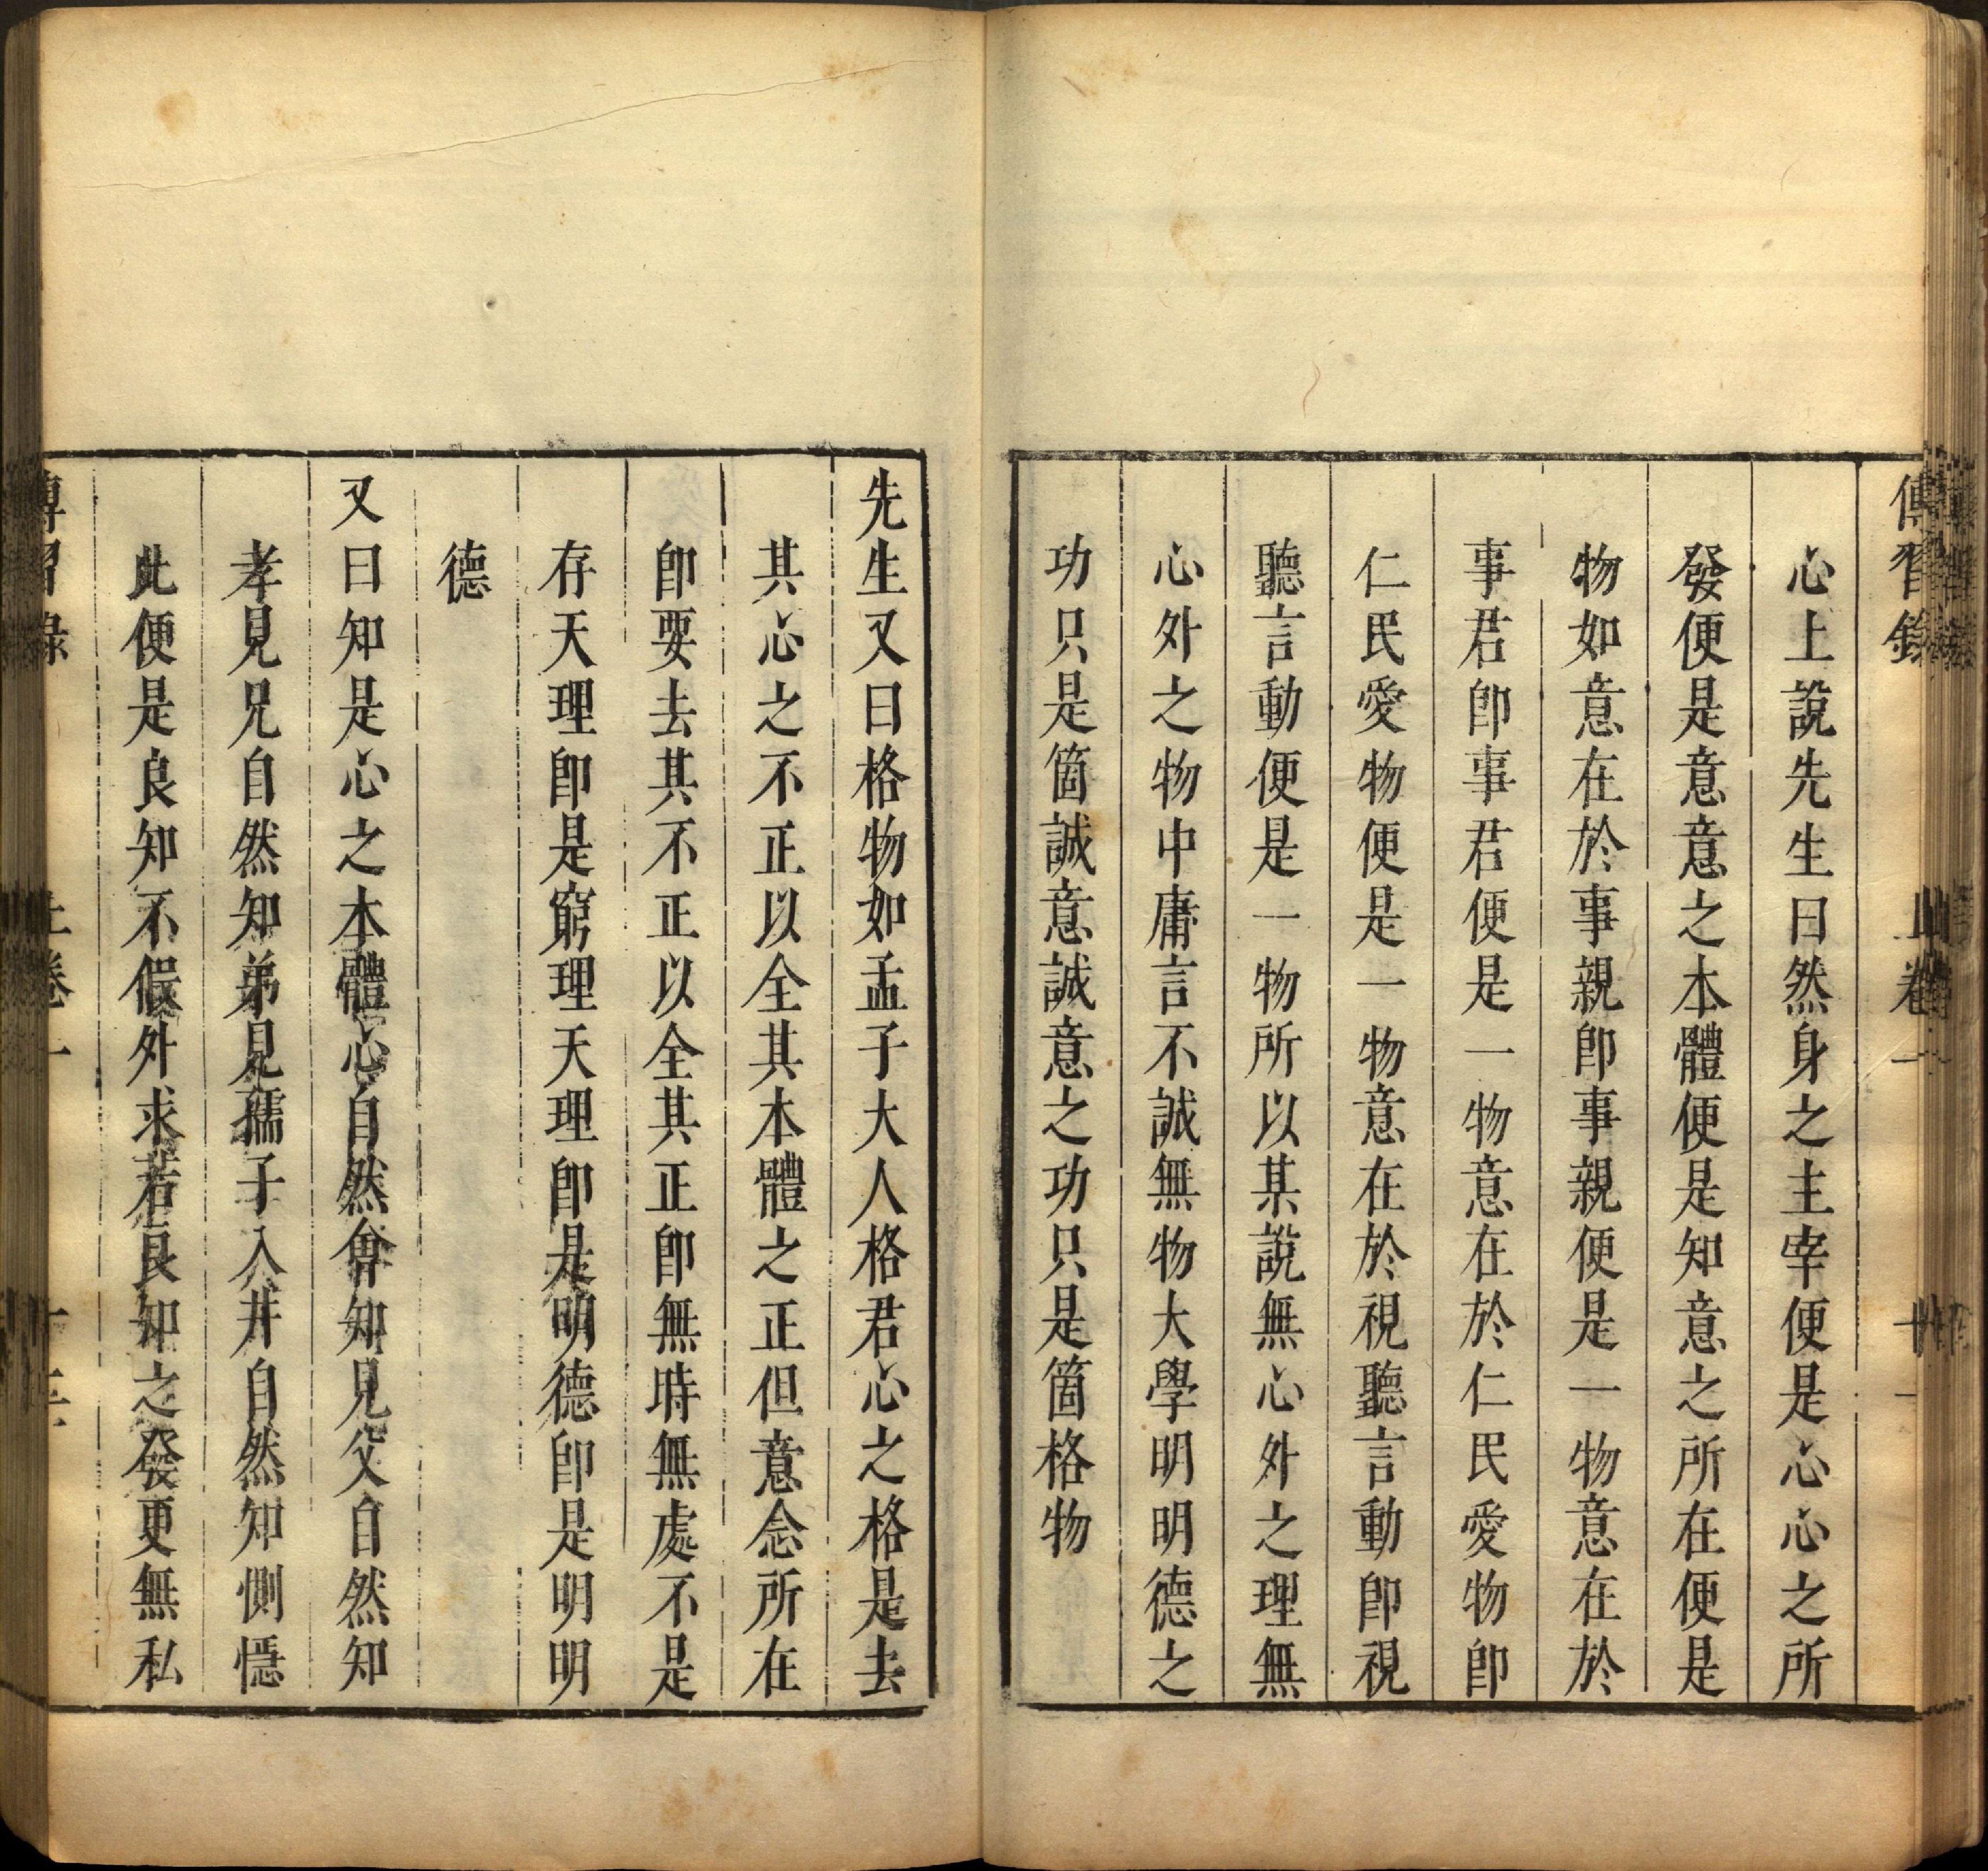 傳習錄 上卷一 十二
心上說先生曰然身之主宰便是心心之所
發便是意意之本體便是知意之所在便是
物如意在於事親卽事親便是一物意在於
事君卽事君便是一物意在於仁民愛物卽
仁民愛物便是一物意在於視聽言動卽視
聽言動便是一物所以某說無心外之理無
心外之物中庸言不誠無物大學明明德之
功只是箇誠意誠意之功只是箇格物
先生又曰格物如孟子大人格君心之格是去
其心之不正以全其本體之正但意念所在
卽要去其不正以全其正卽無時無處不是
存天理卽是窮理天理卽是明德卽是明明
德
又曰知是心之本體心自然會知見父自然知
孝見兄自然知弟見孺子入井自然知惻隱
此便是良知不假外求若良知之發更無私
傳習錄 上卷一 十三